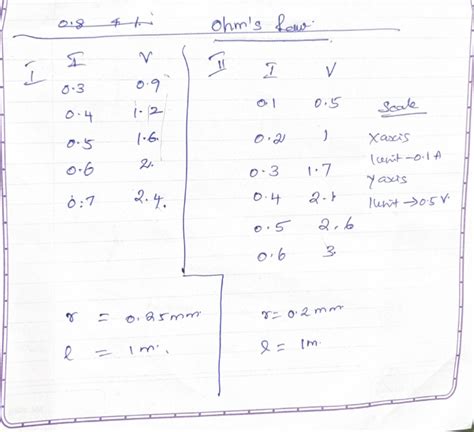 Ohm's Law.
I
I V
0.3 0.9
0.4 1.2
0.5 1.6
0.6 2.
0.7 2.4.
r = 0.25mm
l = 1m.
II
I V
0.1 0.5
0.2 1
0.3 1.7
0.4 2.1
0.5 2.6
0.6 3.
r = 0.2mm
l = 1m.
Scale
X axis
1 unit → 0.1 A
Y axis
1 unit → 0.5 V.